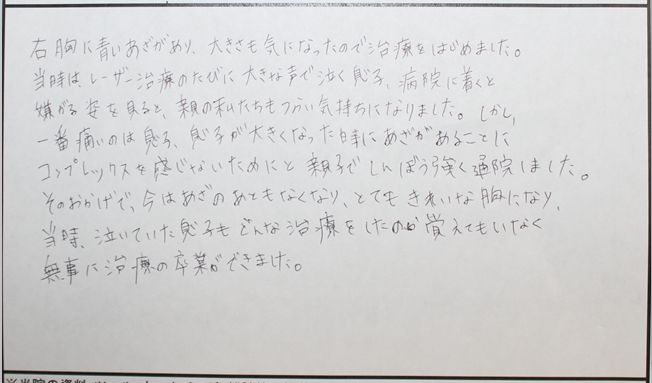 右胸に青いあざがあり、大きさも気になったので治療をはじめました。
当時は、レーザー治療のたびに大きな声で泣く息子、病院に着くと
嫌がる姿を見ると、親の私たちもつらい気持ちになりました。しかし、
一番痛いのは息子、息子が大きくなった時にあざがあることに
コンプレックスを感じないためにと親子でしんぼう強く通院しました。
そのおかげで、今はあざのあともなくなり、とてもきれいな胸になり、
当時、泣いていた息子もどんな治療をしたのか覚えてもいなく
無事に治療の卒業ができました。
※当院の資料